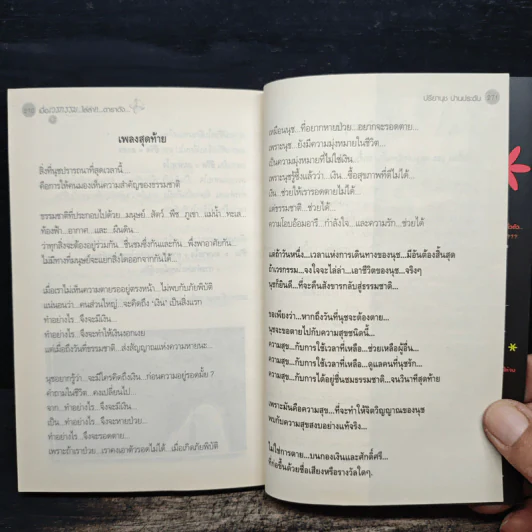 เพลงสุดท้าย
สิ่งที่นุชปรารถนาที่สุดเวลานี้...
คือการให้คนมองเห็นความสำคัญของธรรมชาติ
ธรรมชาติที่ประกอบไปด้วย...มนุษย์ สัตว์ พืช...ภูเขา...แม่น้ำ...ทะเล...
ท้องฟ้า...อากาศ...และ...ผืนดิน...
ว่าทุกสิ่งจะต้องอยู่ร่วมกัน...ชื่นชมซึ่งกันและกัน...พึ่งพาอาศัยกัน...
ไม่มีทางที่มนุษย์จะแยกสิ่งใดออกจากกันได้...
เมื่อเราไม่เห็นความตายรออยู่ตรงหน้า...ไม่พบกับภัยพิบัติ
แน่นอนว่า...คนส่วนใหญ่...จะคิดถึง "เงิน" เป็นสิ่งแรก
ทำอย่างไร...จึงจะมีเงิน...
ทำอย่างไร...จึงจะทำให้เงินงอกเงย
แต่เมื่อถึงวันที่ธรรมชาติ...ส่งสัญญาณแห่งความหายนะ...
นุชอยากรู้ว่า...จะมีใครคิดถึงเงิน...ก่อนความอยู่รอดมั้ย ?
คำถามในชีวิต...คงเปลี่ยนไป...
จาก...ทำอย่างไร...จึงจะมีเงิน...
เป็น...ทำอย่างไร...จึงจะหายป่วย...
ทำอย่างไร...จึงจะรอดตาย...
เพราะถ้าเราป่วย...เราคงเอาตัวรอดไม่ได้...เมื่อเกิดภัยพิบัติ
ปรียานุช ปานประดับ 271
เหมือนนุช...ที่อยากหายป่วย...อยากจะรอดตาย...
เพราะนุช...ยังมีความมุ่งหมายในชีวิต...
เป็นความมุ่งหมายที่ไม่ใช่เงิน...
เพราะนุชรู้ซึ้งแล้วว่า...เงิน...ซื้อสุขภาพที่ดีไม่ได้...
เงิน...ช่วยให้เรารอดตายไม่ได้...
แต่ธรรมชาติ...ช่วยได้...
ความโอบอ้อมอารี...กำลังใจ...และความรัก...ช่วยได้
แต่ถ้าวันหนึ่ง...เวลาแห่งการเดินทางของนุช...มีอันต้องสิ้นสุด
ถ้าเวรกรรม...จงใจจะไล่ล่า...เอาชีวิตของนุช...จริงๆ
นุชก็ยินดี...ที่จะคืนสังขารกลับสู่ธรรมชาติ...
ขอเพียงว่า...หากถึงวันที่นุชจะต้องตาย...
นุชจะขอตายไปกับความสุขชนิดนี้...
ความสุข...กับการใช้เวลาที่เหลือ...ช่วยเหลือผู้อื่น...
ความสุข...กับการใช้เวลาที่เหลือ...ดูแลคนที่นุชรัก...
ความสุข...กับการได้อยู่ชื่นชมธรรมชาติ...จนวินาทีสุดท้าย
เพราะมันคือความสุข...ที่จะทำให้จิตวิญญาณของนุช
พบกับความสุขสงบอย่างแท้จริง...
ไม่ใช่การตาย...บนกองเงินและศักดิ์ศรี...
ที่ก่อขึ้นด้วยชื่อเสียงหรือรางวัลใดๆ.